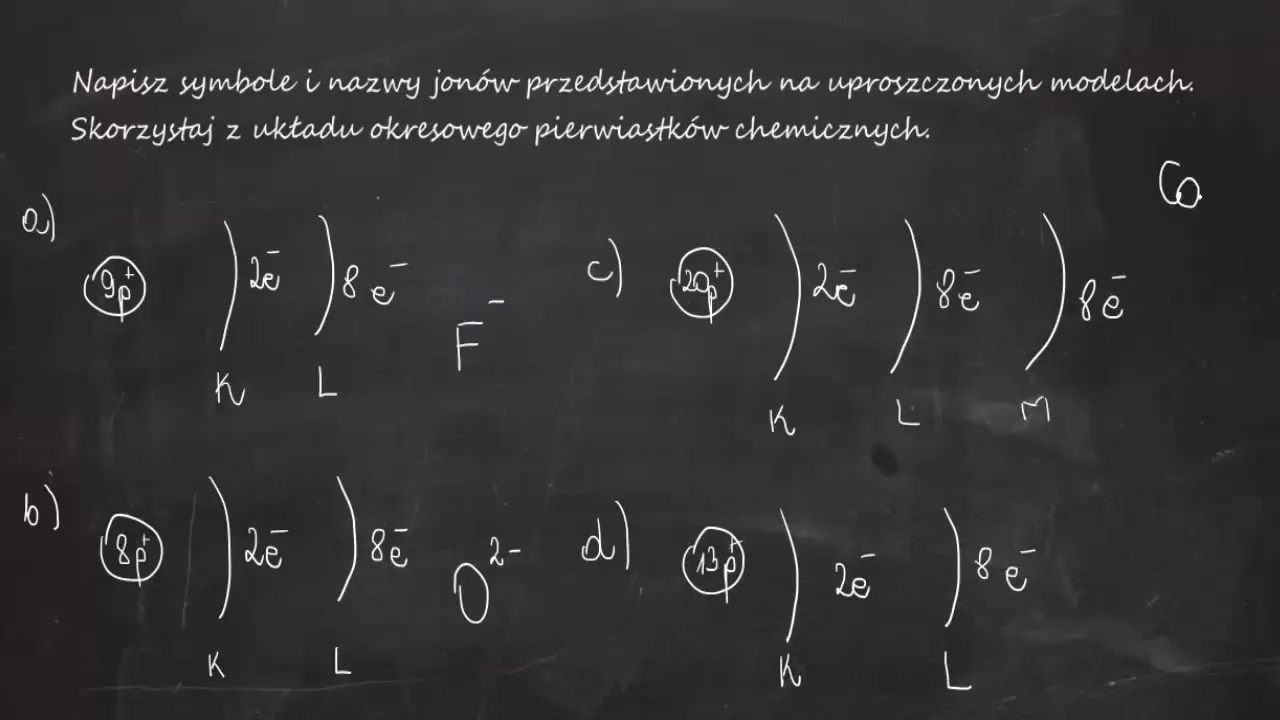 Napisz symbole i nazwy jonów przedstawionych na uproszczonych modelach.
Skorzystaj z układu okresowego pierwiastków chemicznych.
a)
9p⁺ 2e⁻ 8e⁻
K L
F⁻
b)
8p⁺ 2e⁻ 8e⁻
K L
O²⁻
c)
20p⁺ 2e⁻ 8e⁻ 8e⁻
K L M
Ca
d)
13p⁺ 2e⁻ 8e⁻
K L